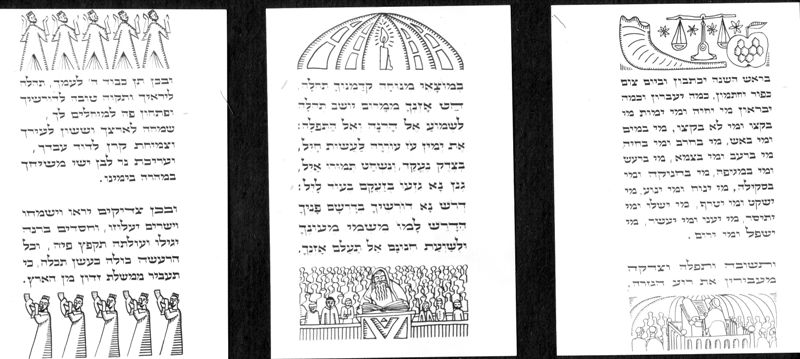 בראש השנה יכתבון וביום צום
כפור יחתמון, כמה יעברון וכמה
יבראון מי יחיה ומי ימות מי
בקצו ומי לא בקצו, מי במים
ומי באש, מי בחרב ומי בחיה
מי ברעב ומי בצמא, מי ברעש
ומי במגיפה, מי בחניקה ומי
בסקילה, מי ינוח ומי ינוע, מי
ישקט ומי יטרף, מי ישלו ומי
יתיסר, מי יעני ומי יעשר, מי
ישפל ומי ירום.
ותשובה ותפלה וצדקה
מעבירין את רוע הגזרה.
במוצאי מנוחה קדמנוך תחלה,
הט אזנך ממרום יושב תהלה
לשמוע אל הרנה ואל התפלה:
את ימין עז עוררה לעשות חיל,
בצדק נעקד, ונשחט תמורו איל,
גנן נא גזעו בזעקם בעוד ליל:
דרש נא דורשיך בדרשם פניך
הדרש למו משמי מעונך
ולשועת חנונם אל תעלם אזנך.
ובכן תן כבוד ה' לעמך, תהלה
ליראיך ותקוה טובה לדורשיך
ופתחון פה למיחלים לך,
שמחה לארצך וששון לעירך
וצמיחת קרן לדוד עבדך,
ועריכת נר לבן ישי משיחך
במהרה בימינו.
ובכן צדיקים יראו וישמחו
וישרים יעלוזו, וחסידים ברנה
יגילו ועולתה תקפץ פיה, וכל
הרשעה כולה בעשן תכלה, כי
תעביר ממשלת זדון מן הארץ.